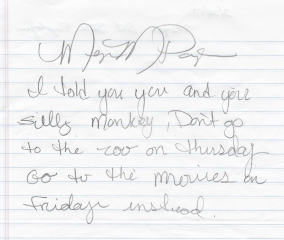 I told you you and your
silly monkey, Don't go
to the zoo on thursday
Go to the movies on
Fridays instead.